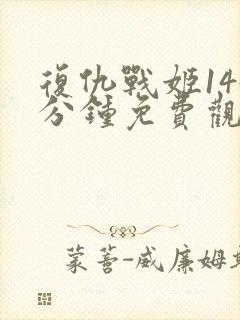 復仇戰姬14
分鍾免費觀
蒙著-威廉姆斯